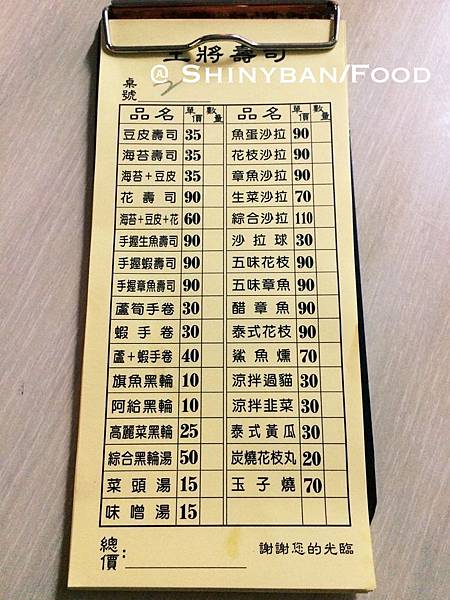 王將壽司
@ SHINYBAN/FOOD
桌號 2
品名 單價 數量 品名 單價 數量
豆皮壽司 35 魚蛋沙拉 90
海苔壽司 35 花枝沙拉 90
海苔+豆皮 35 章魚沙拉 90
花壽司 90 生菜沙拉 70
海苔+豆皮+花 60 綜合沙拉 110
手握生魚壽司 90 沙拉球 30
手握蝦壽司 90 五味花枝 90
手握章魚壽司 90 五味章魚 90
蘆筍手卷 30 醋章魚 90
蝦手卷 30 泰式花枝 90
蘆+蝦手卷 40 鯊魚燻 70
旗魚黑輪 10 涼拌過貓 30
阿給黑輪 10 涼拌韭菜 30
高麗菜黑輪 25 泰式黃瓜 30
綜合黑輪湯 50 炭燒花枝丸 20
菜頭湯 15 玉子燒 70
味噌湯 15
總價: 謝謝您的光臨